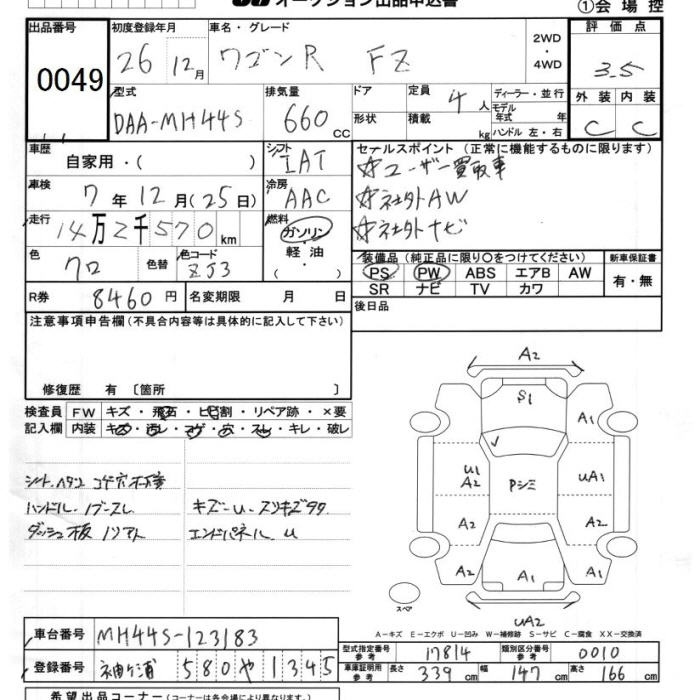 オークション出品申込書
①会場控
出品番号 0049
初度登録年月 26年12月
車名・グレード ワゴンR FZ
2WD・4WD
評価点 3.5
型式 DAA-MH44S
排気量 660cc
ドア
形状
定員 4人
積載 kg
ディーラー・並行
モデル年式 年
ハンドル 左・右
外装 C 内装 C
車歴 自家用・( )
シフト IAT
セールスポイント (正常に機能するものに限ります)
☆ユーザー買取車
☆社外AW
☆社外ナビ
車検 7年12月(25日)
冷房 AAC
走行 14万2千570km
燃料 ガソリン・軽油・( )
色 クロ 色替 色コード ZJ3
装備品 (純正品に限り○をつけてください)
PS PW ABS エアB AW
SR ナビ TV カワ
新車保証書 有・無
R券 8460円 名変期限 月 日
後日品
注意事項申告欄(不具合内容等は具体的に記入して下さい)
修復歴 有 〔箇所 〕
検査員記入欄
FW キズ・飛石・ヒビ割・リペア跡・×要
内装 キズ・汚レ・コゲ・穴・スレ・キレ・破レ
ハンドル・ノブースレ
キズ一U・スリキズタタ
エンドパネル U
A2
S1
A1
U1
A2
Pシミ
UA1
A2
A2
A2
A1
A2
UA2
スペア
A-キズ E-エクボ U-凹み W-補修跡 S-サビ C-腐食 XX-交換済
車台番号 MH44S-123183
登録番号 袖ヶ浦 580 や 1345
型式指定番号 参考 17814 類別区分番号 参考 0010
車庫証明用 参考 長さ 339cm 幅 147cm 高さ 166cm
希望出品コーナー(コーナーは各会場により異なります)